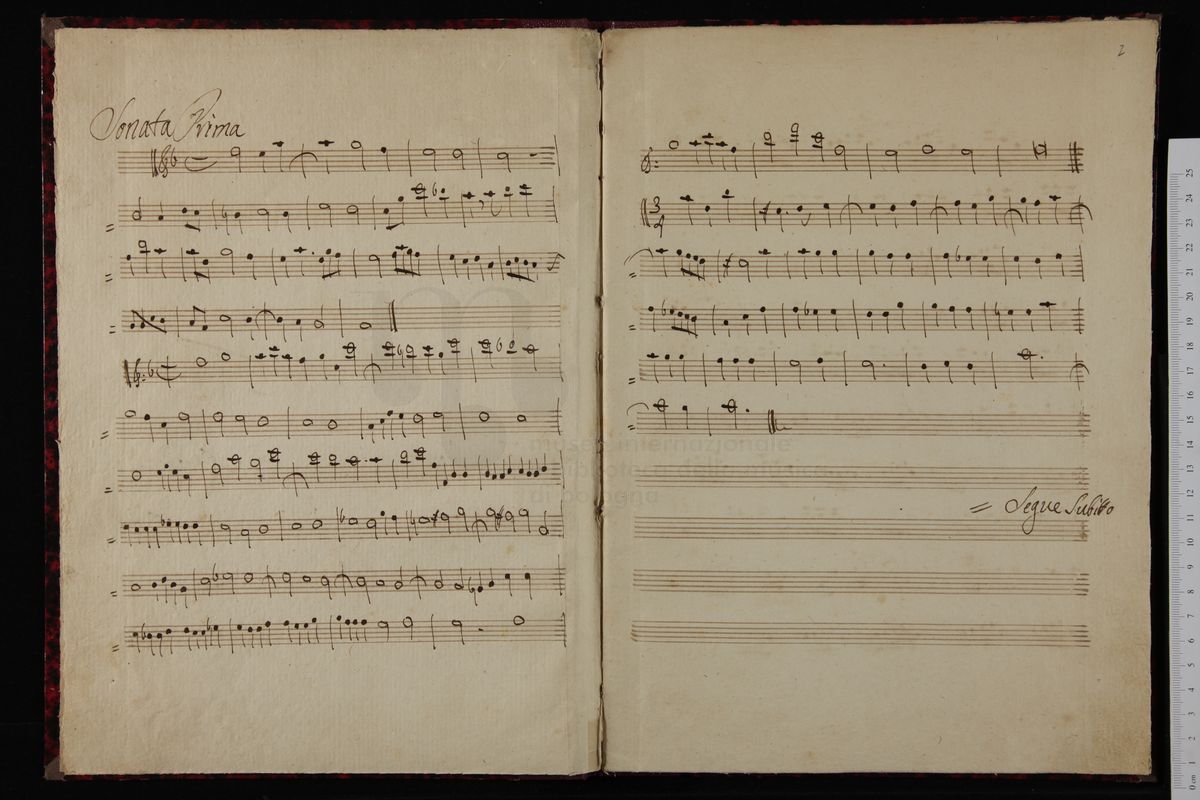 Sonata Prima
2
3
4
museo internazionale
e biblioteca della musica
di bologna
= Segue Subito
25
24
23
22
21
20
19
18
17
16
15
14
13
12
11
10
9
8
7
6
5
4
3
2
1
0 cm